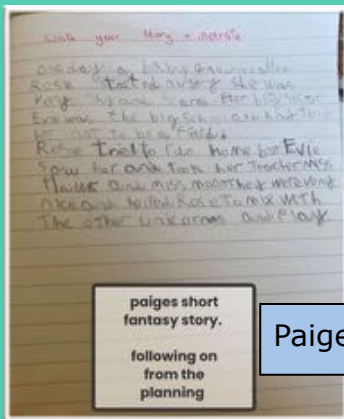 write your story + illustrate
one day a baby unicorn called
Rosie started nursery she was
very shy and scared. Her big sister
Evie was the big school and had told
her not to be afraid.
Rosie Triel to run home but Evie
Saw her and Took her Teacher Miss
Hawk and miss moon They were very
nice and helped Rose To mix with
The other unicorns and Play
paiges short
fantasy story.
following on
from the
planning
Paige